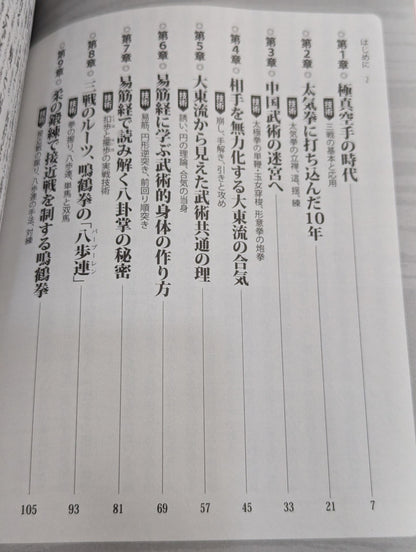 はじめに 2
第1章 極真空手の時代 7
技術 三戦の基本と応用
第2章 太気拳に打ち込んだ10年 21
技術 太気拳の立禅、這、揺、練
第3章 中国武術の迷宮へ 33
技術 太極拳の単鞭・玉女穿梭、形意拳の炮拳
第4章 相手を無力化する大東流の合気 45
技術 崩し、手解き、引きと攻め
第5章 大東流から見えた武術共通の理 57
技術 誘い、円の理論、合気の当身
第6章 易筋経に学ぶ武術的身体の作り方 69
技術 易筋、円形逆突き、前回り順突き
第7章 易筋経で読み解く八卦掌の秘密 81
技術 扣歩と擺歩の実戦技術
第8章 三戦のルーツ、鳴鶴拳の「八歩連」 93
パーブーレン
技術 拳の握り、八歩連、単馬と双馬
第9章 柔の鍛練で接近戦を制する鳴鶴拳 105
技術 八歩連の手法、対練